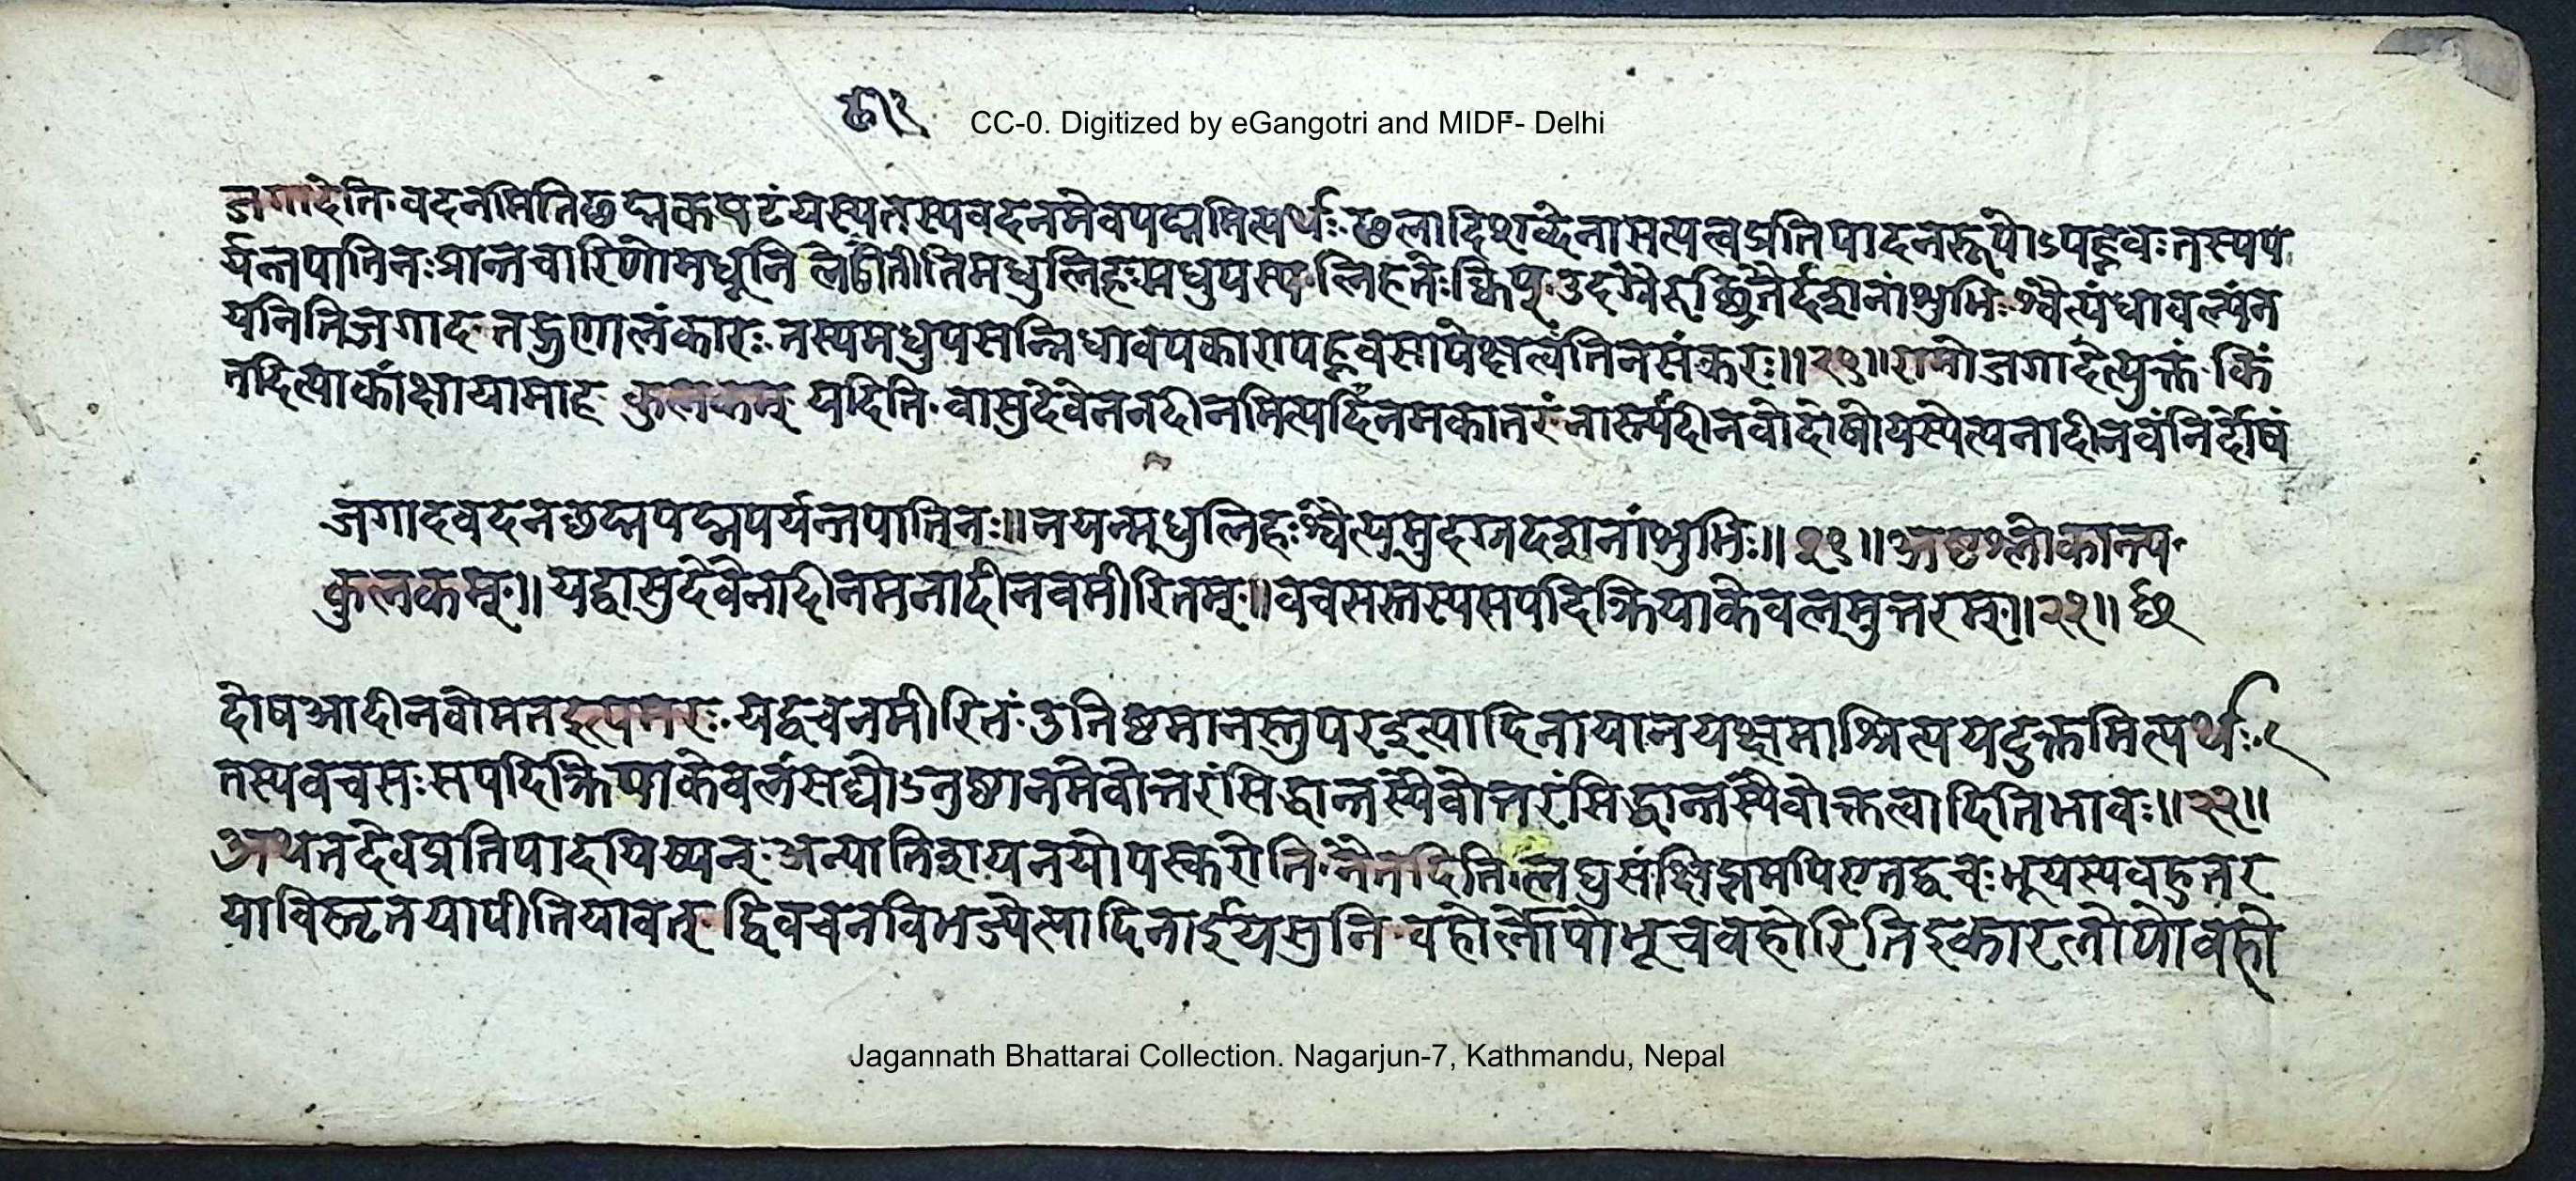 टी२
CC-0. Digitized by eGangotri and MIDF- Delhi
जगादेति॰वदनमितिछद्मकपटंयस्यतस्यवदनमेवपद्ममित्यर्थः॰छलादिशब्देनासत्यत्वप्रतिपादनरूपोऽपह्नवःतस्यप
र्यन्तपातिनःप्रान्तचारिणोमधूनि लेढीतीतिमधुलिहःमधुपस्य॰लिहतेःक्विप्॰उदग्रैरुच्छ्रितैर्दशनांशुभिः॰श्वैत्यंधावल्यंन
यनितिजगाद॰तद्गुणालंकारः॰तस्यमधुपसन्निधावपकारापह्नवसापेक्षत्वंतिनसंकरः॥२१॥रामोजगादेत्युक्तं॰किं
तदित्याकांक्षायामाह कुलकम् यदिति॰वासुदेवेननदीनमित्यदीनमकातरंनास्त्यदीनवोदोषोयस्येत्यनादीनवंनिर्दोषं
जगादवदनछद्मपद्मपर्यन्तपातिनः॥नयन्मधुलिहःश्वैत्यमुदग्रदशनांशुभिः॥२१॥अष्टश्लोकान्त्य॰
कुलकम्॥यद्वासुदेवेनादीनमनादीनवमीरितम्॥वचसस्तस्यसपदिक्रियाकेवलमुत्तरम्॥२२॥
दोषआदीनवोमतइत्यमरः॰यद्वचनमीरितं॰उत्तिष्ठमानस्तुपरइत्यादिनायानयक्षमाश्रित्ययदुक्तमित्यर्थः॰
तस्यवचसःसपदिक्रियाकेवलंसद्योऽनुष्ठानमेवोत्तरंसिद्धान्तस्यैवोत्तरंसिद्धान्तस्यैवोक्तत्वादितिभावः॥२२॥
अथतदेवप्रतिपादयिष्यन्॰अन्यातिशयनयोपस्करोति॰नैतदिति॰लघुसंक्षिप्तमपिएतद्वचःभूयस्यबहुतर
याविस्तृतयापीतियावत् द्विवचनविभज्येत्यादिनाईयसुनि॰बहोर्लोपोभूचबहोरितिइकारलोपोबहो
Jagannath Bhattarai Collection. Nagarjun-7, Kathmandu, Nepal